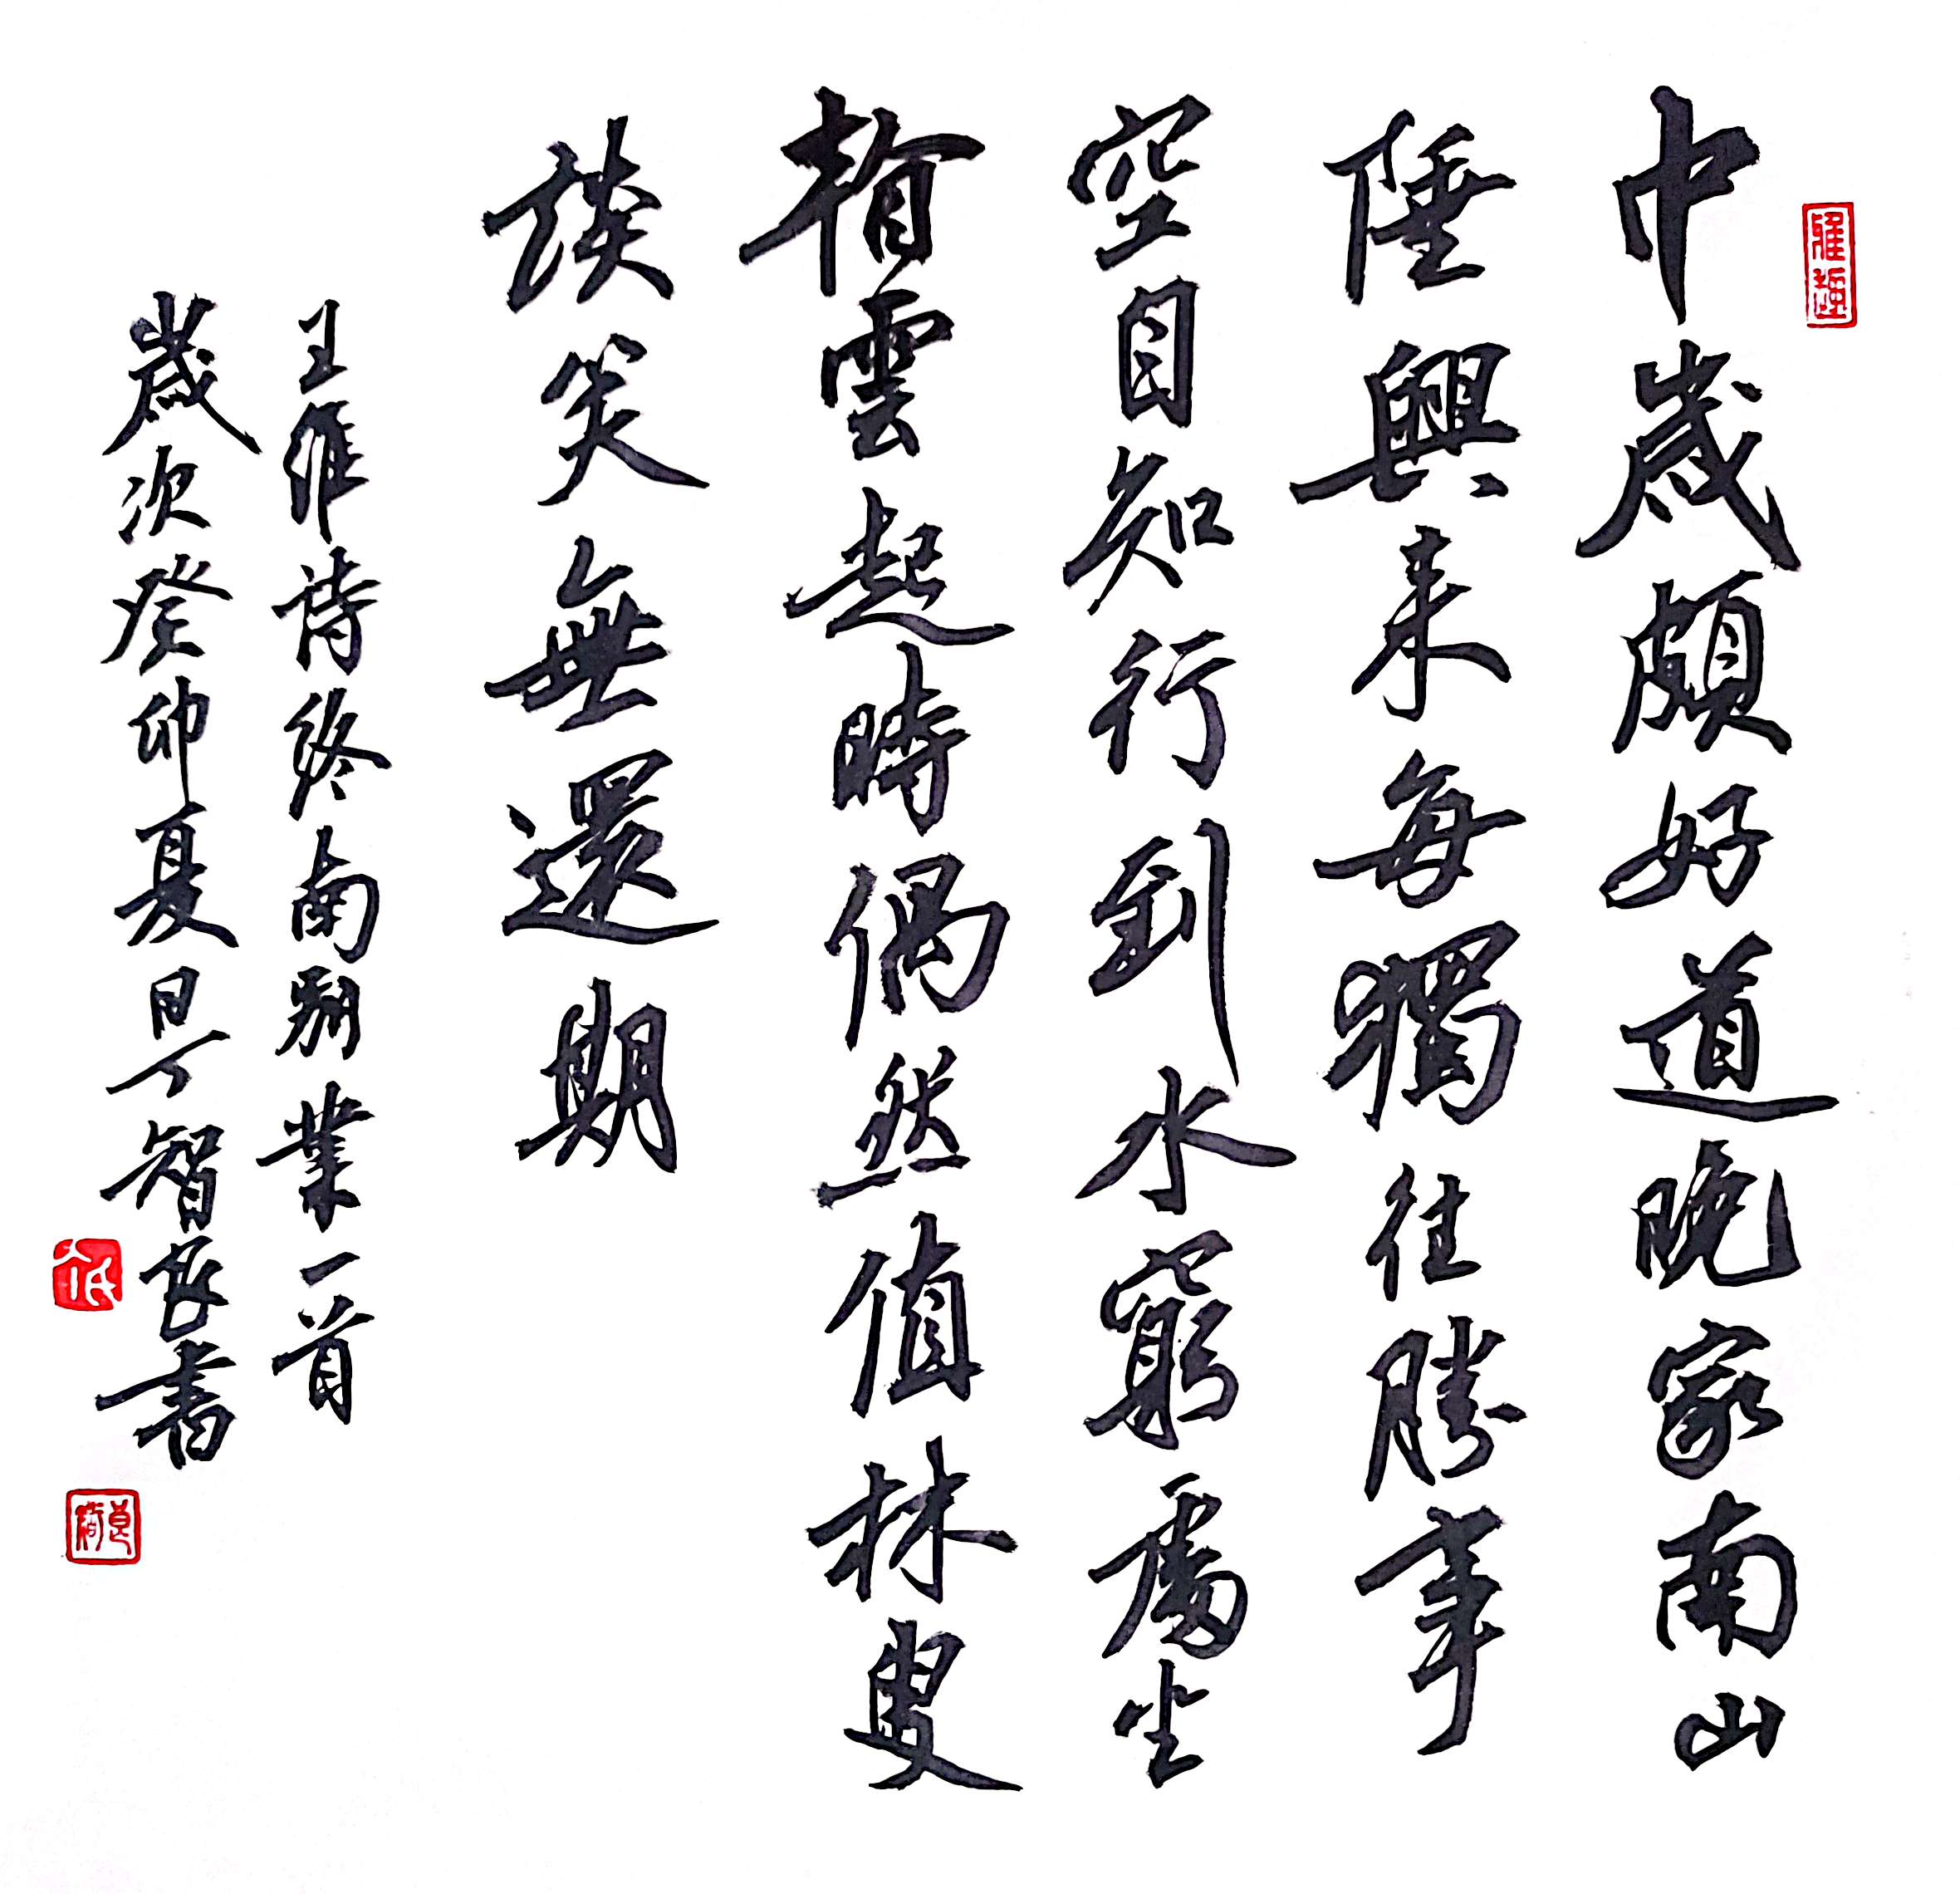 雅趣
中歲頗好道晚家南山
陲興来每獨往勝事
空自知行到水窮處坐
看雲起時偶然值林叟
談笑無還期
王維詩終南別業一首
歲次癸卯夏月智良書